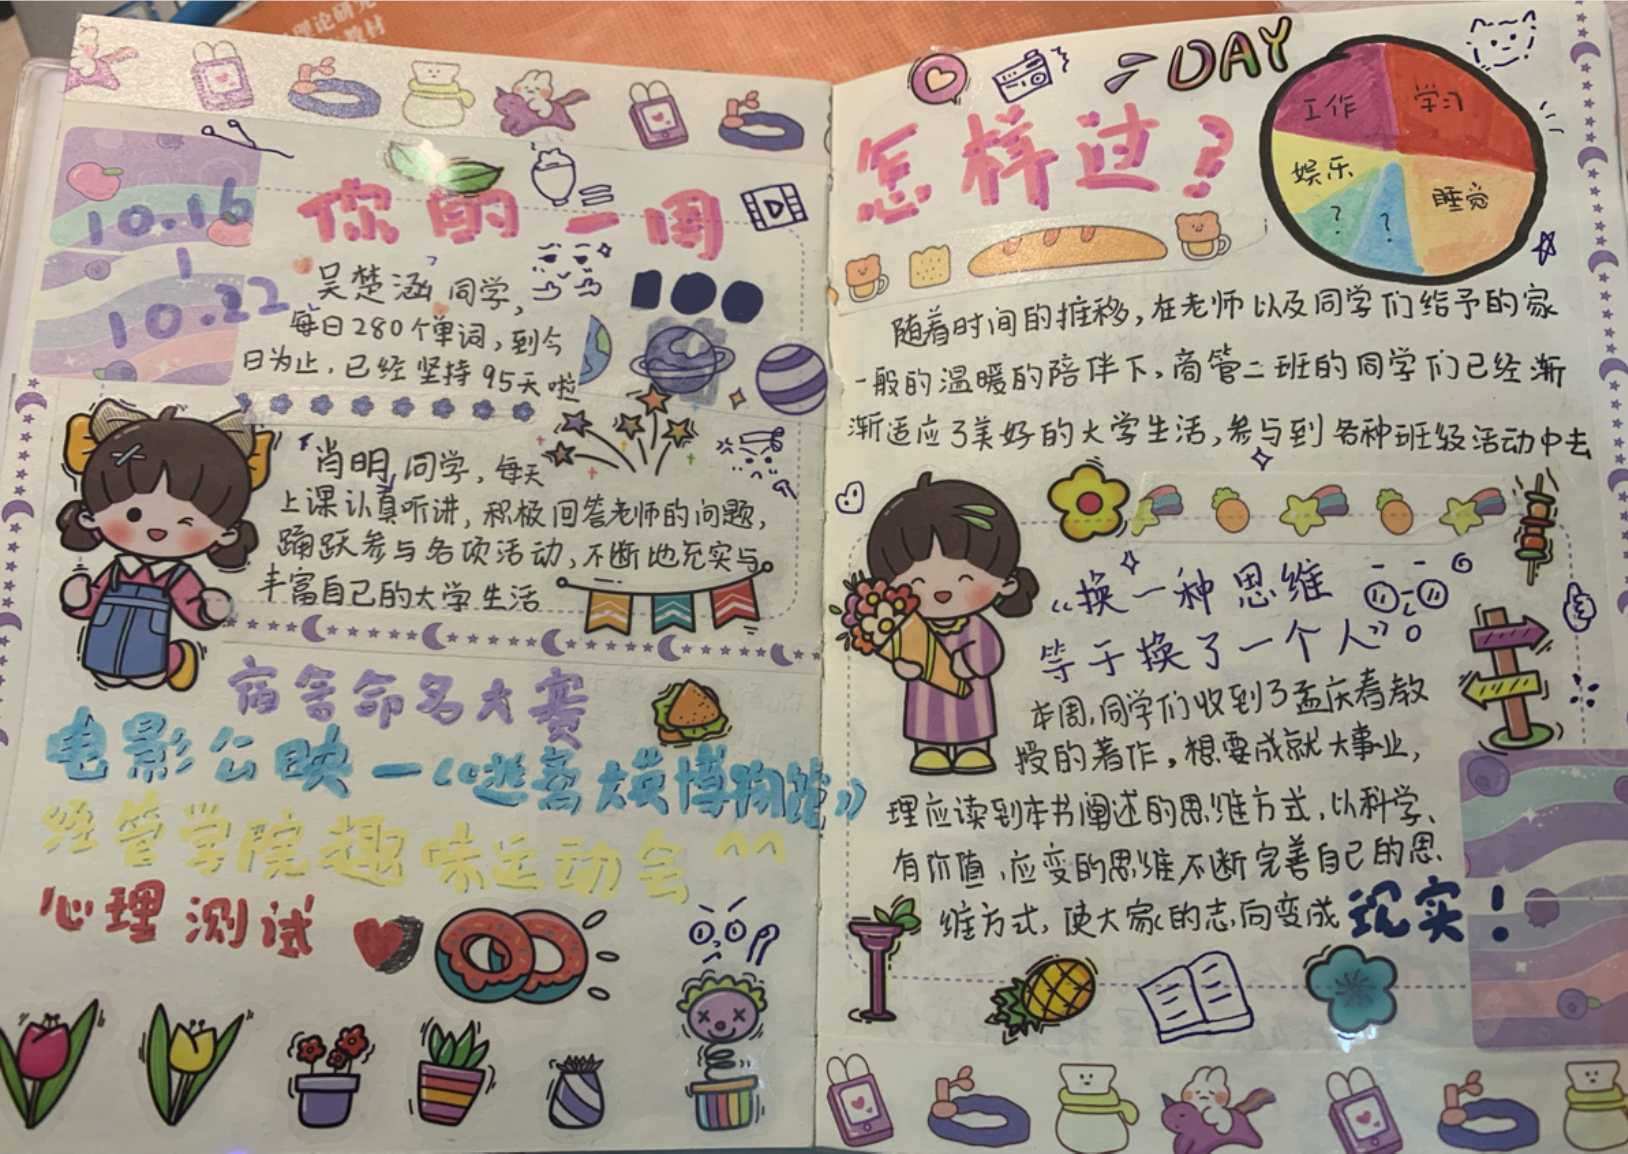 理论研究
教材
10.16
|
10.22
你的一周
吴楚涵同学,
每日280个单词,到今
日为止,已经坚持95天啦
肖明同学,每天
上课认真听讲,积极回答老师的问题,
踊跃参与各项活动,不断地充实与
丰富自己的大学生活
宿舍命名大赛
电影公映—《逃离大英博物馆》
经管学院趣味运动会^^
心理测试
DAY
怎样过?
工作
学习
娱乐
睡觉
?
?
随着时间的推移,在老师以及同学们给予的家
一般的温暖的陪伴下,商管二班的同学们已经渐
渐适应了美好的大学生活,参与到各种班级活动中去
“换一种思维
等于换了一个人”。
本周,同学们收到了孟庆春教
授的著作。想要成就大事业,
理应读到本书阐述的思维方式,以科学、
有价值,应变的思维不断完善自己的思
维方式,使大家的志向变成现实!